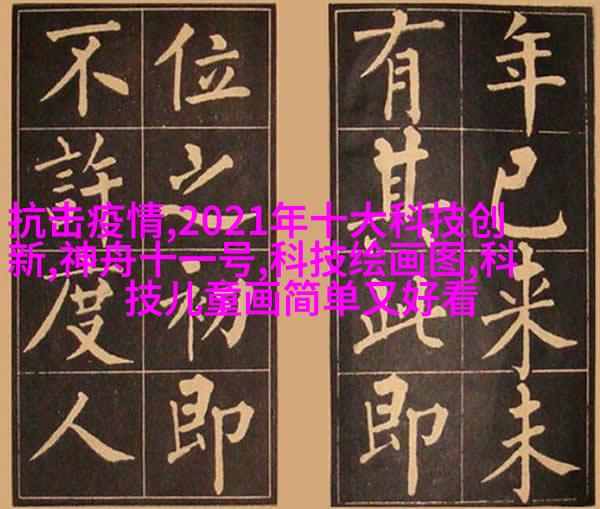 年已来未
有其此即
位之初即
不許度人
抗击疫情,2021年十大科技创
新,神舟十一号,科技绘画图,科
技儿童画简单又好看